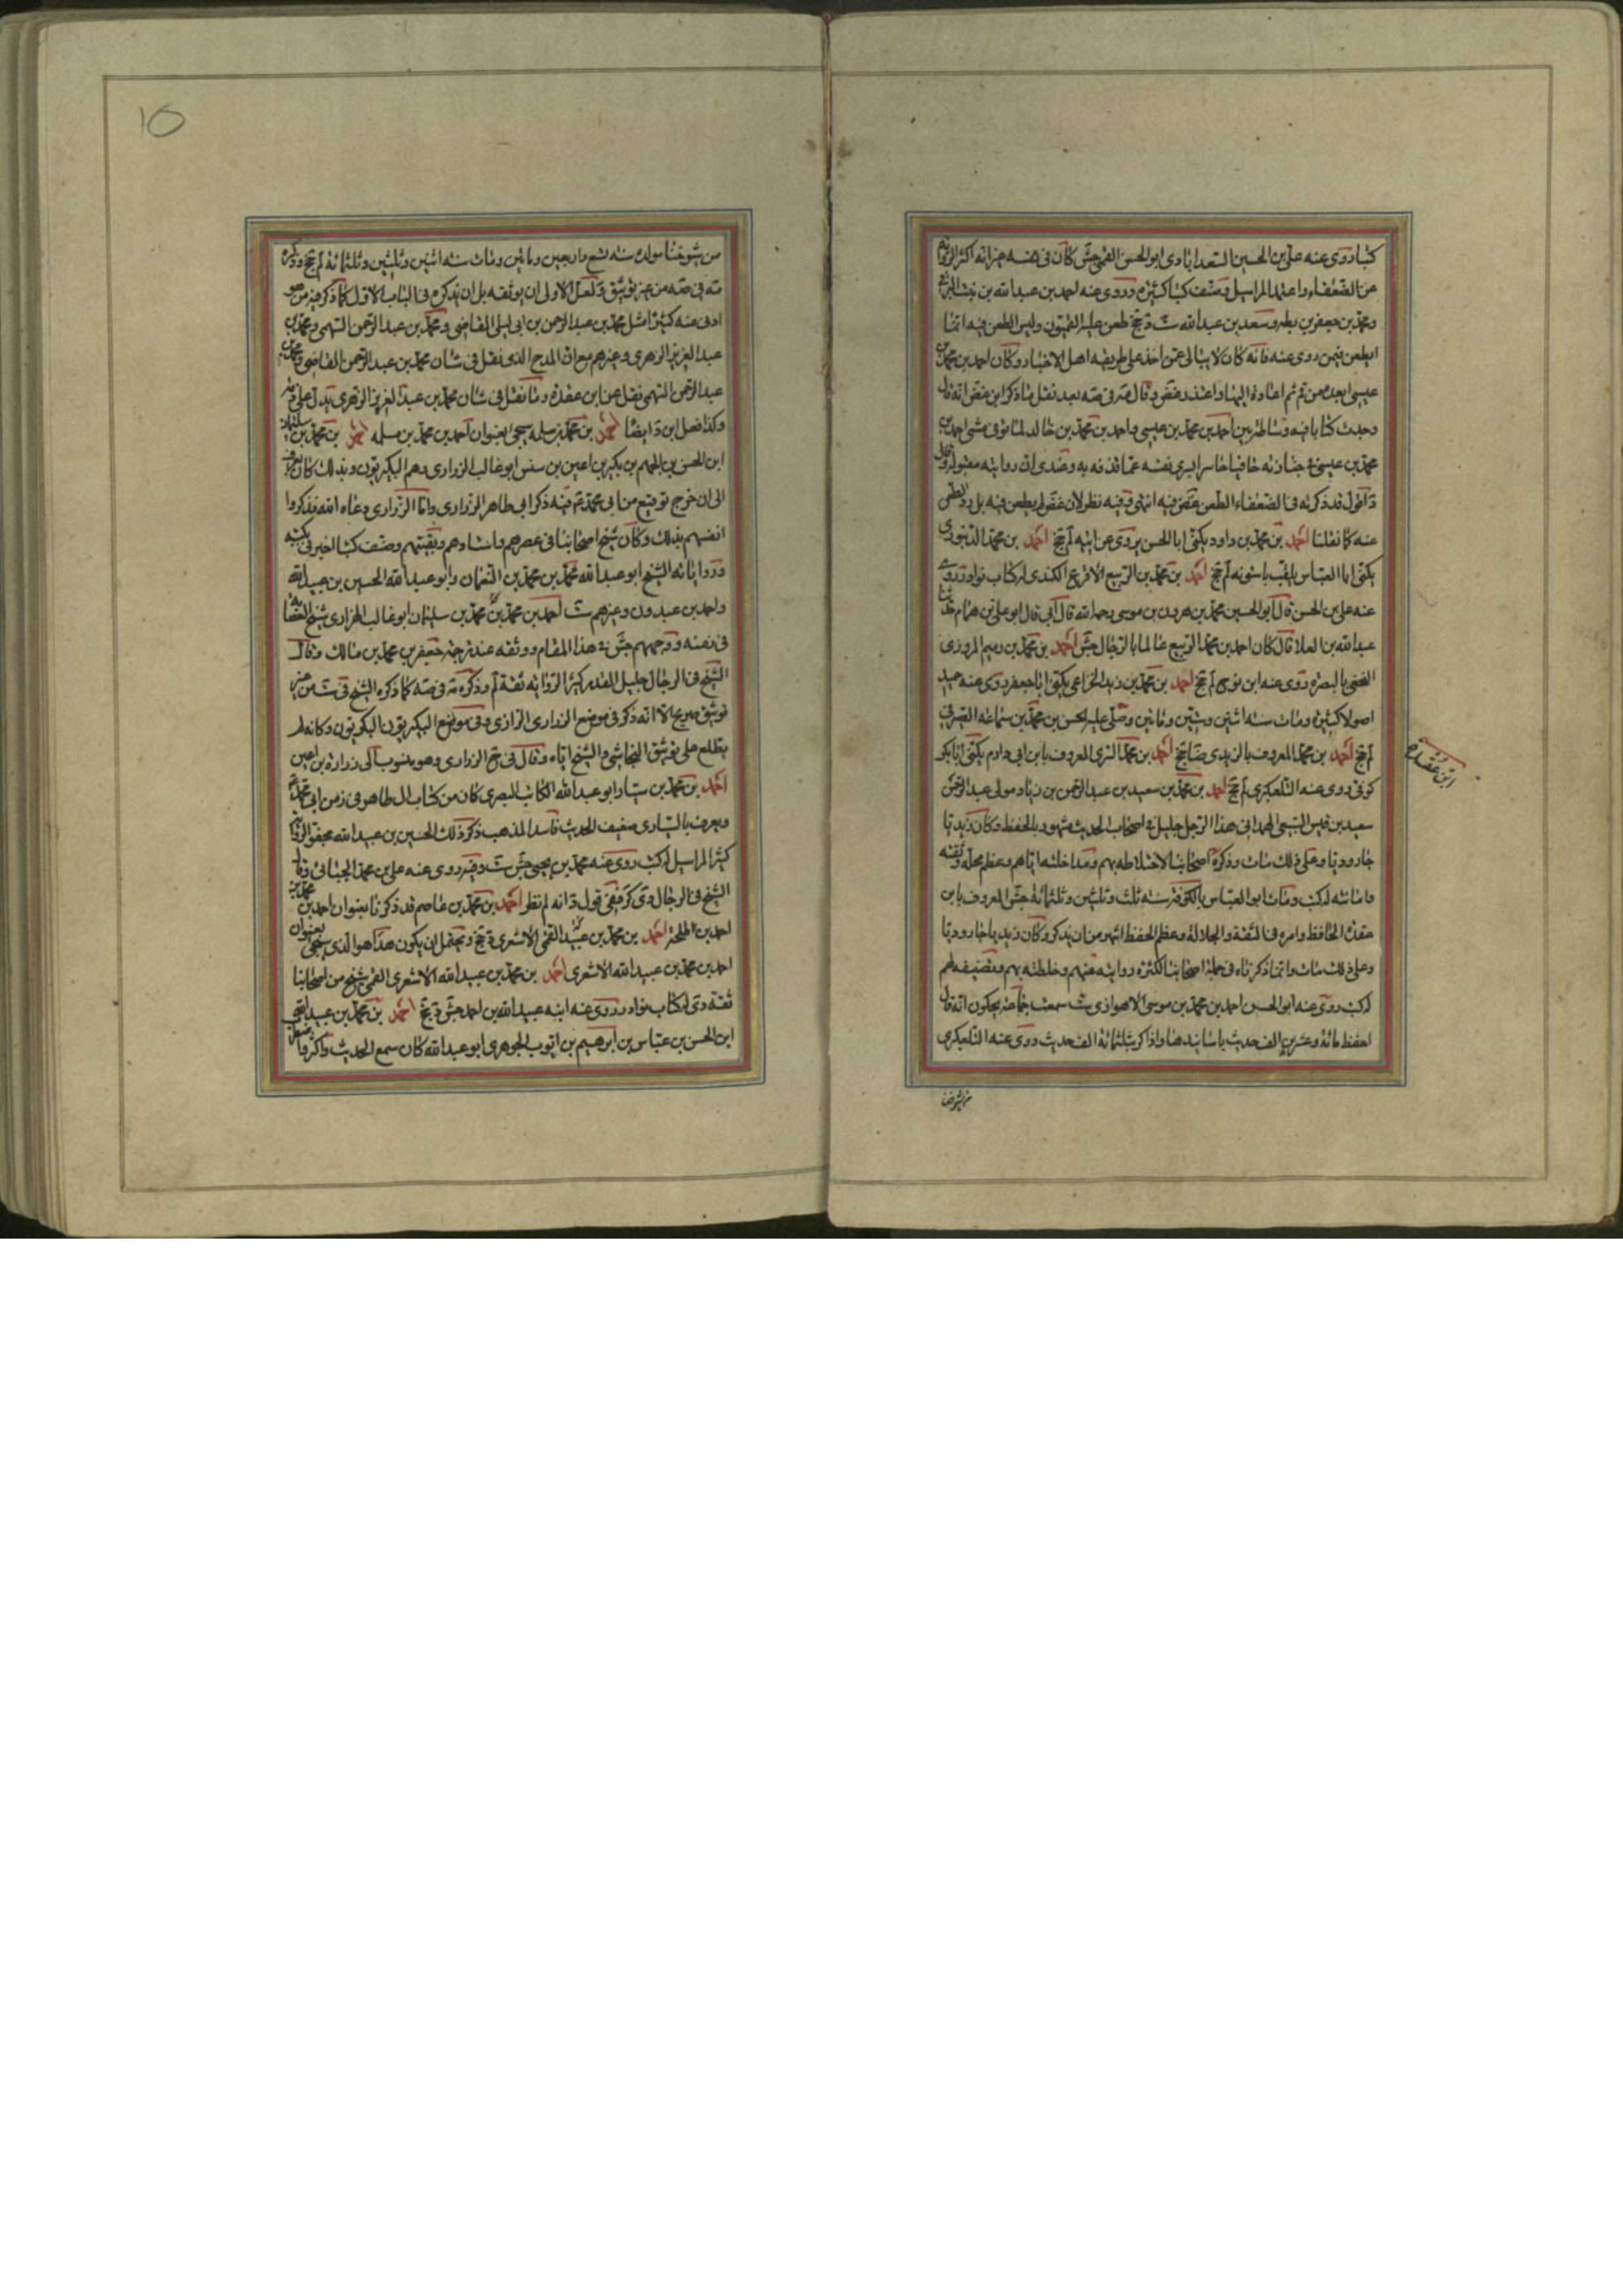 كتبا روى عنه علي بن الحسين السعدابادي ابو الحسن القمي جش كان في نفسه جز انه اكثر الرواية
عن الضعفاء واعتمد المراسيل وصنف كتبا كثيرة وروى عنه احمد بن عبدالله بن بنت البرقي
ومحمد بن جعفر بن بطه وسعد بن عبد الله ست د تخ طعن عليه القميون وليس الطعن فيه انما
الطعن فيمن روى عنه فانه كان لا يبالى عمن اخذ على طريقه اهل الاخبار وكان احمد بن محمد بن
عيسى ابعده من قم ثم اعاده اليها واعتذر
وجدت كتابا فيه وساطة بين احمد بن محمد بن عيسى واحمد بن محمد بن خالد لما توفى مشى احمد بن
محمد بن عيسى في جنازته حافيا حاسرا ليبرى نفسه عما قذفه به وعندى ان روايته مقبولة وقال
د اقول قد ذكرته في الضعفاء لطعن غض فيه انتهى وفيه نظر لان غض لم يطعن فيه بل رد الطعن
عنه كما نقلنا احمد بن محمد بن داود يكنى ابا الحسن يروى عن ابيه لم تخ احمد بن محمد الدينورى
يكنى ابا العباس يلقب باستونه لم تخ احمد بن محمد بن الربيع الاقرع الكندى له كتاب نوادر روى
عنه علي بن الحسن قال ابو الحسين محمد بن هرون بن موسى رحمه الله قال ابي قال ابو علي بن همام حدثنا
عبد الله بن العلا قال كان احمد بن محمد الربيع عالما بالرجال جش احمد بن محمد بن رميم المروزى
النخعي بالبصره روى عنه ابن نوح لم تخ احمد بن محمد بن زيد الخزاعي يكنى ابا جعفر روى عنه حميد
اصولا كثيرة ومات سنه اثنين وستين ومائتين وصلى عليه الحسن بن محمد بن سماعه الصيرفي
لم تخ احمد بن محمد المعروف بالزيدى ضا تخ احمد بن محمد السرى المعروف بابن ابى دارم يكنى ابا بكر
كوفى روى عنه التلعكبرى لم تخ احمد بن محمد بن سعيد بن عبد الرحمن بن زياد مولى عبد الرحمن
سعيد بن قيس السبيعى الهمدانى هذا الرجل جليل في اصحاب الحديث مشهور بالحفظ وكان زيديا
جاروديا وعلى ذلك مات وذكره اصحابنا لاختلاطه بهم ومداخلته اياهم وعظم محله وثقته
وامانته له كتب ومات ابو العباس بالكوفة سنه ثلث وثلثين وثلثمائة جش المعروف بابن
عقدة الحافظ وامره في الثقة والجلالة وعظم الحفظ اشهر من ان يذكر وكان زيديا جاروديا
وعلى ذلك مات وانما ذكرناه في جملة اصحابنا لكثرة روايته عنهم وخلطته بهم وتصنيفه لهم
له كتب روى عنه ابو الحسن احمد بن محمد بن موسى الاهوازى ست سمعت جماعة يحكون انه قال
احفظ مائة وعشرين الف حديث باسانيدها واذاكر بثلثمائة الف حديث روى عنه التلعكبرى
ابن عقده
من شيوخنا
10
من شيوخنا مولده سنه تسع واربعين ومائتين ومات سنه اثنين وثلثين وثلثمائة لم تخ وذكره
من غير توثيق ولعل الاولى ان يوثقه بل ان يذكره في الباب الاول كما ذكر فيه من هو
ادنى منه كثيرا مثل محمد بن عبد الرحمن بن ابى ليلى القاضى ومحمد بن عبد الرحمن السهمى ومحمد بن
عبد العزيز الزهرى وغيرهم مع ان المدح الذى نقل في شان محمد بن عبد الرحمن القاضى
عبد الرحمن السهمى نقل عن ابن عقدة وما نقل في شان محمد بن عبد العزيز الزهرى يدل على
وكذا فعل ابن د ايضا احمد بن محمد بن سلمه سيجئ بعنوان احمد بن محمد بن سلمه احمد بن محمد بن سليمان
ابن الحسن بن الجهم بن بكير بن اعين بن سنسن ابو غالب الزرارى وهم البكيريون وبذلك كان يعرف
الى ان خرج توقيع من ابى محمد ع فيه ذكر ابى طاهر الزرارى واما الزرارى رعاه الله فذكروا
انفسهم بذلك وكان شيخ اصحابنا في عصرهم واستادهم وبقيتهم وصنف كتبا اخبرنى بكتبه
ورواياته الشيخ ابو عبد الله محمد بن محمد بن النعمان وابو عبد الله الحسين بن عبيدالله
واحمد بن عبدون وغيرهم ست احمد بن محمد بن محمد بن سليمان ابو غالب الزرارى شيخ العصابة
في زمنه ووجههم جش في هذا المقام ووثقه عند ترجمة جعفر بن محمد بن مالك وقال
الشيخ في الرجال جليل القدر كثير الرواية ثقة لم
توثيق صريح الا انه ذكر في موضع الزرارى الرازى وفى موضع البكيريون البكريون وكانه لم
يطلع على توثيق النجاشى والشيخ اياه وقال في تخ الزرارى وهو منسوب الى زرارة بن اعين
احمد بن محمد بن سيار ابو عبد الله الكاتب البصرى كان من كتاب ال طاهر في زمن ابى محمد ع
ويعرف بالسيارى ضعيف الحديث فاسد المذهب ذكر ذلك الحسين بن عبيد الله مجفو الرواية
كثير المراسيل له كتب روى عنه محمد بن يحيى جش ست وفيه روى عنه على بن محمد الجبائى وقال
الشيخ في الرجال دى كر وفى قول د انه لم نظر احمد بن محمد بن عاصم قد ذكرنا بعنوان احمد بن محمد بن
احمد بن طلحه احمد بن محمد بن عبيد القمى الاشعرى د تخ ويحتمل ان يكون هذا هو الذى سيجئ بعنوان
احمد بن محمد بن عبيد الله الاشعرى احمد بن محمد بن عبيد الله الاشعرى القمى شيخ من اصحابنا
ثقة دى له كتاب نوادر روى عنه ابنه عبيد الله بن احمد جش د تخ احمد بن محمد بن عبيد الله
ابن الحسن بن عياش بن ابرهيم بن ايوب الجوهرى ابو عبد الله كان سمع الحديث واكثر واضطرب